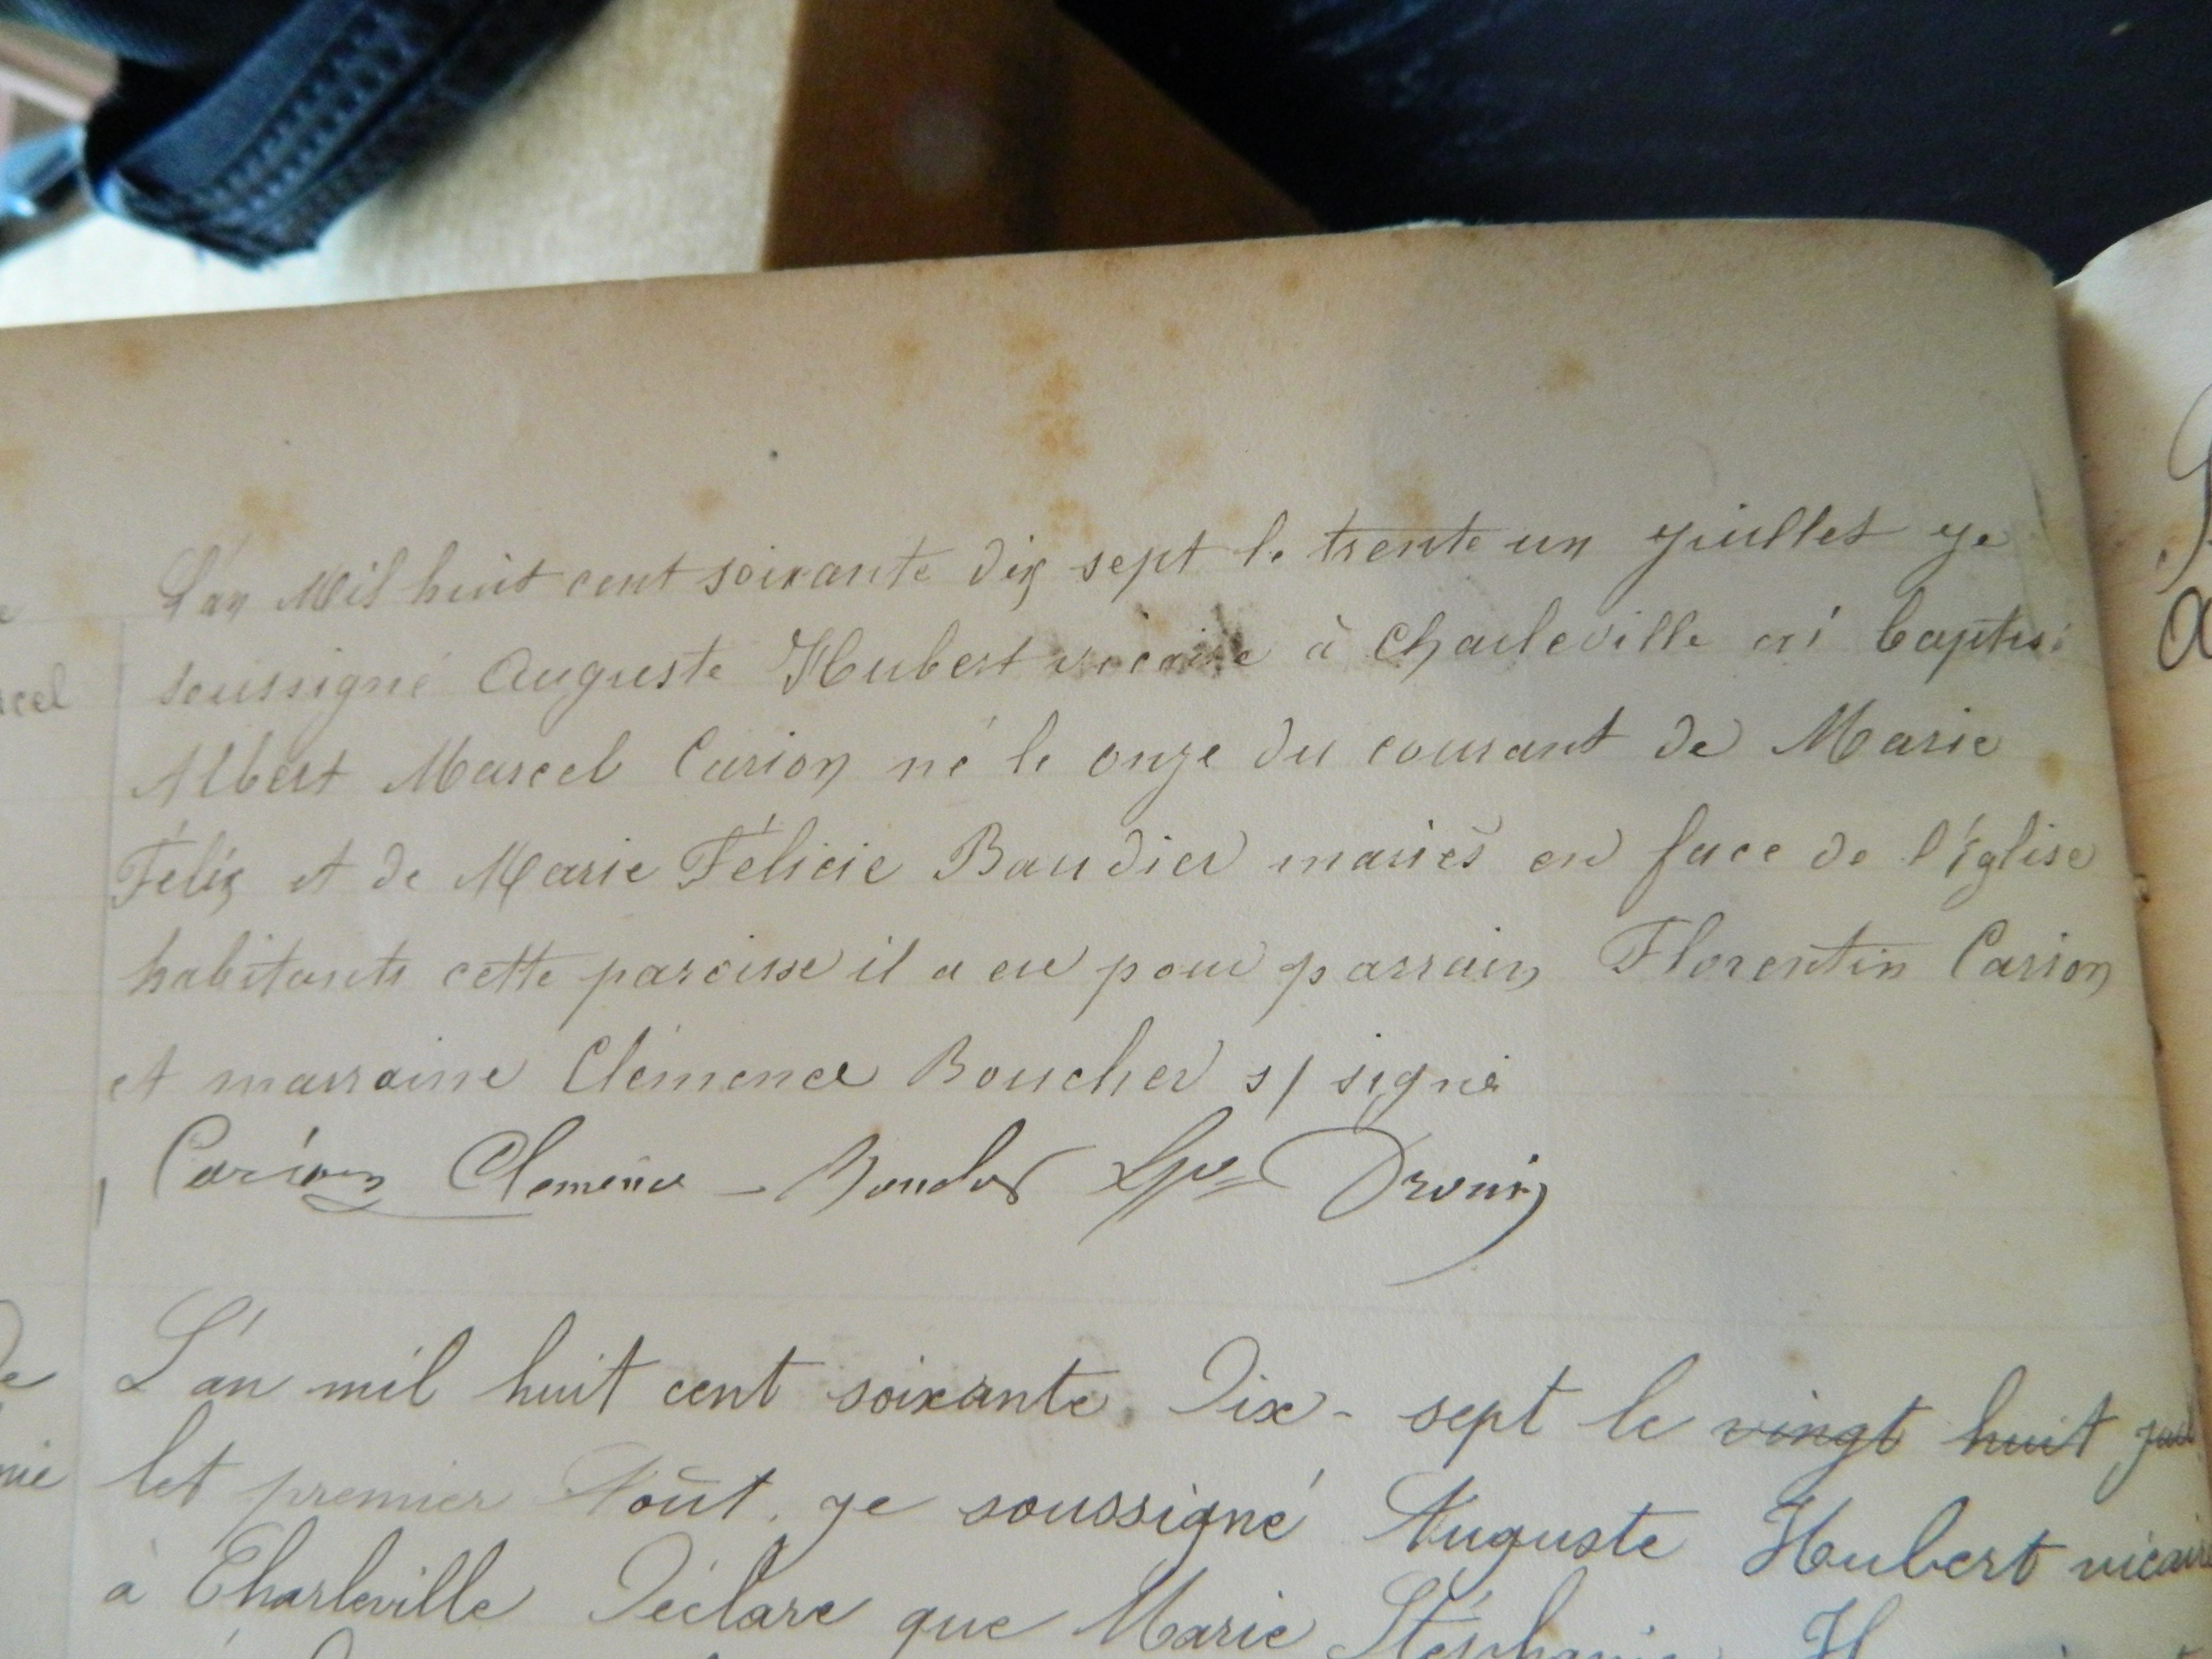 L'an Mil huit cent soixante dix sept le trente un juillet je
soussigné Auguste Hubert vicaire à Charleville ai baptisé
Albert Marcel Carion né le onze du courant de Marie
Félix et de Marie Félicie Baudier mariés en face de l'église
habitants cette paroisse il a eu pour parrain Florentin Carion
et marraine Clémence Boucher s/ signé
Carion Clemence - Boucher Drouin
L'an mil huit cent soixante Dix - sept le vingt huit juil
let premier Août. je soussigné Auguste Hubert vicaire
à Charleville Déclare que Marie Stéphanie